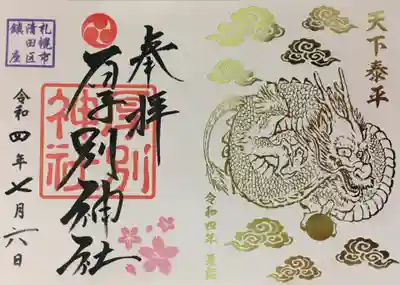 天下泰平
令和四年 夏詣
奉拝
厚別神社
厚別神社
札幌市
清田区
鎮座
令和四年七月六日